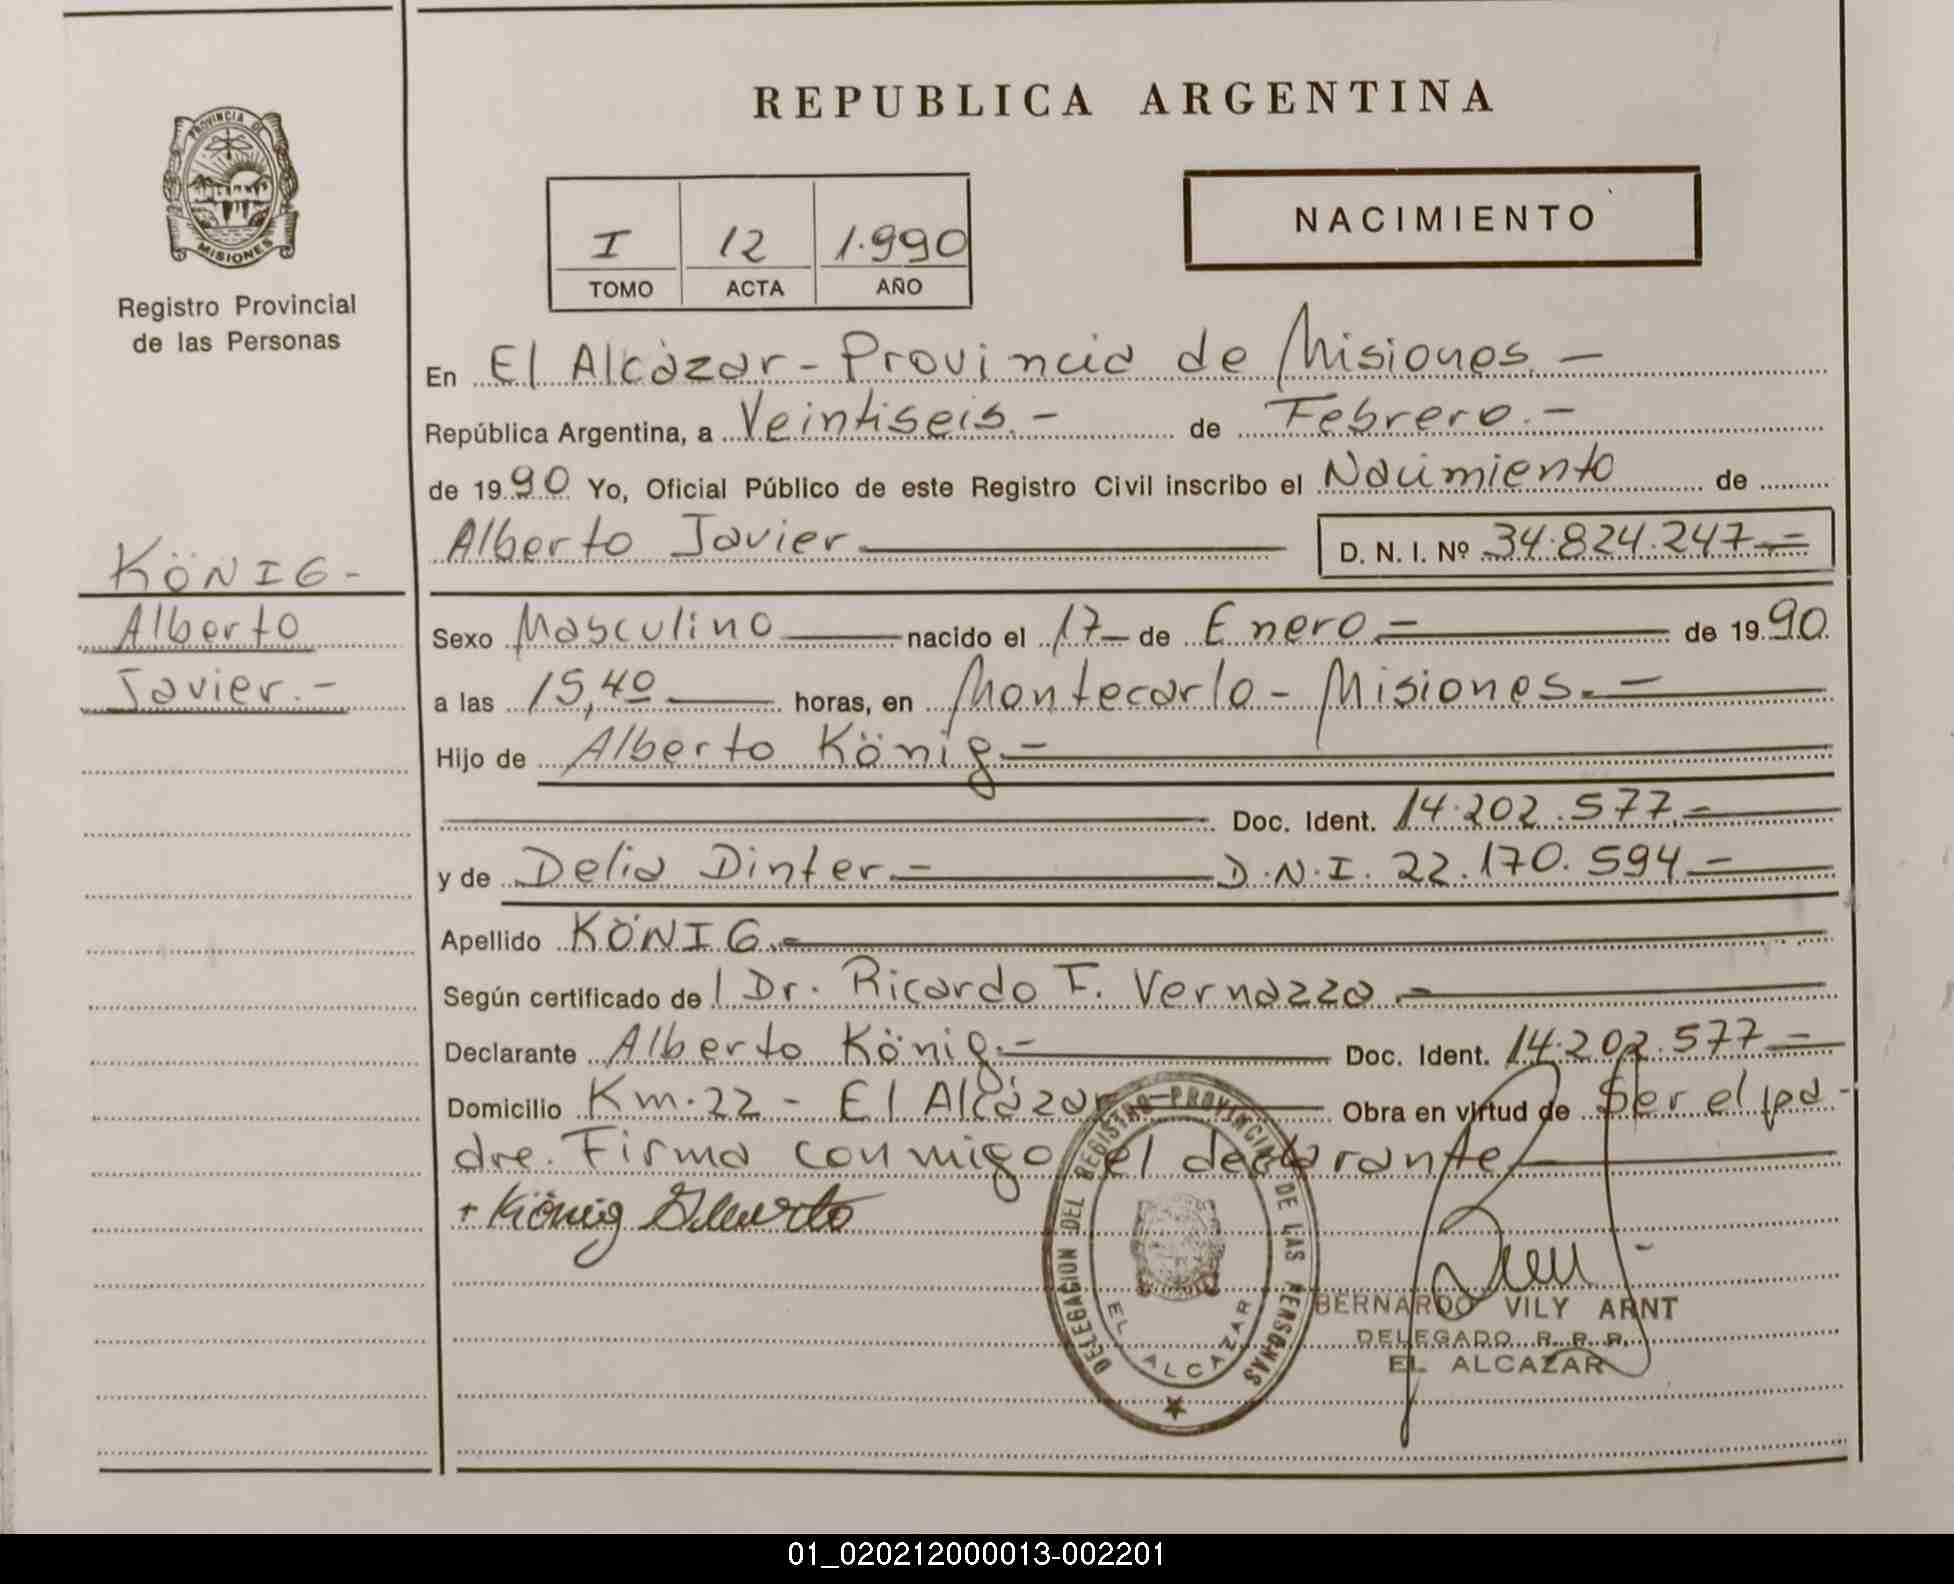 REPUBLICA ARGENTINA
PROVINCIA DE
MISIONES
Registro Provincial
de las Personas
NACIMIENTO
I 12 1.990
TOMO ACTA AÑO
En El Alcázar - Provincia de Misiones. -
República Argentina, a Veintiseis. - de Febrero. -
de 1990 Yo, Oficial Público de este Registro Civil inscribo el Nacimiento de
Alberto Javier D. N. I. Nº 34.824.247.-
KÖNIG -
Alberto
Javier. -
Sexo Masculino nacido el 17 de Enero - de 1990
a las 15,40 horas, en Montecarlo - Misiones. -
Hijo de Alberto König. -
Doc. Ident. 14.202.577. -
y de Delia Dinter - D.N.I. 22.170.594 -
Apellido KÖNIG. -
Según certificado de Dr. Ricardo F. Vernazza -
Declarante Alberto König. - Doc. Ident. 14.202.577 -
Domicilio Km. 22 - El Alcázar Obra en virtud de Ser el pa -
dre. Firma conmigo el declarante
König Alberto
DELEGACION DEL REGISTRO PROVINCIAL DE LAS PERSONAS
EL ALCAZAR
BERNARDO VILY ARNT
DELEGADO R. P. P.
EL ALCAZAR
01_020212000013-002201